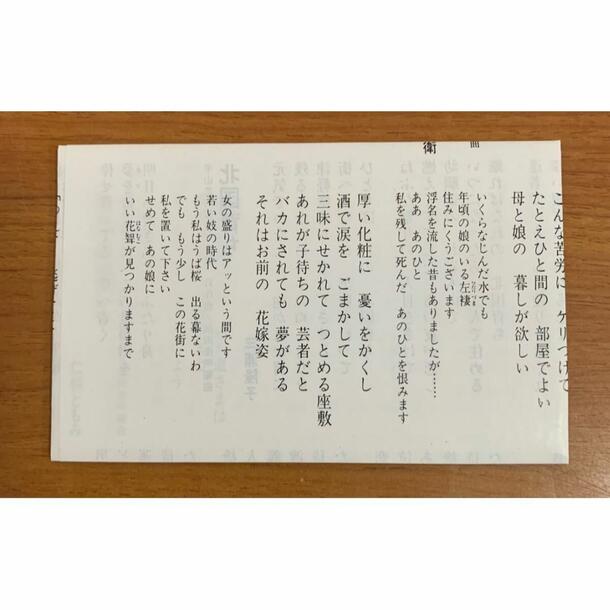 衛
こんな苦労に ケリつけて
たとえひと間の 部屋でよい
母と娘の 暮しが欲しい
いくらなじんだ水でも
年頃の娘のいる左褄
住みにくうございます
浮名を流した昔もありましたが……
ああ あのひと
私を残して死んだ あのひとを恨みます
厚い化粧に 憂いをかくし
酒で涙を ごまかして
三味にせかれて つとめる座敷
あれが子待ちの 芸者だと
バカにされても 夢がある
それはお前の 花嫁姿
女の盛りはアッという間です
若い妓の時代
もう私はうば桜 出る幕ないわ
でも もう少し この花街に
私を置いて下さい
せめて あの娘に
いい花聟が見つかりますまで